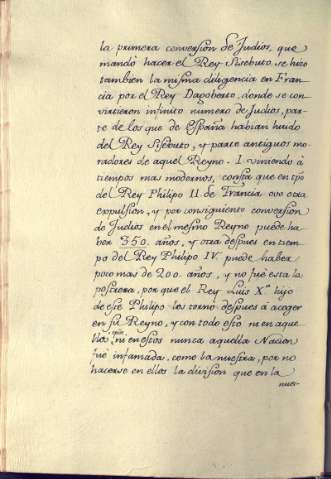 la primera conversion de Judios, que
mandò hacer el Rey Sisebuto, se hizo
tambien la misma diligencia en Fran-
cia por el Rey Dagoberto, donde se con-
virtieron infinito numero de Judios, par-
te de los que de España habian huido
del Rey Sisebuto, y parte antiguos mo-
radores de aquel Reyno. I viniendo à
tiempos mas modernos, consta que en tpō
del Rey Philipo II. de Francia ovo otra
expulsion, y por consiguiente conversion
de Judios en el mesmo Reyno puede ha-
ber 350. años, y otra despues en tiem-
po del Rey Philipo IV. puede haber
poco mas de 200. años, y no fuè esta la
postrera, por que el Rey Luis X.º hijo
de este Philipo los tornò despues à acoger
en su Reyno, y con todo esto ni en aque-
llos, ni en estos nunca aquella Nacion
fue infamada, como la nuestra, por no
hacerse en ellos la division que en la
nues-